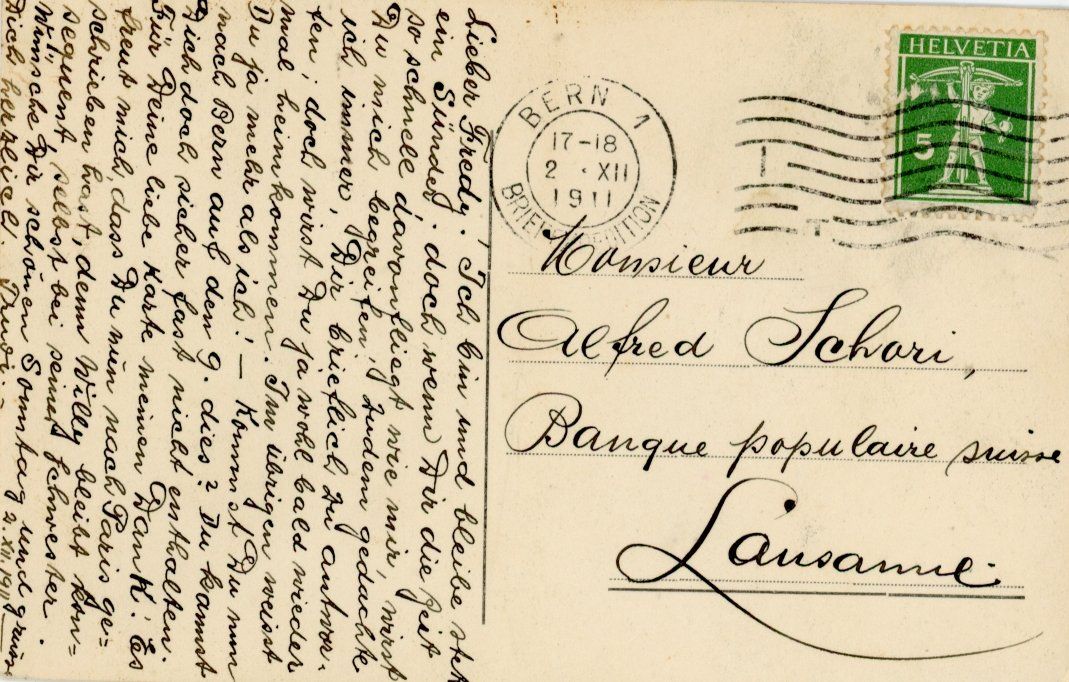 Lieber Fredy! Ich bin und bleibe stets
ein Sünder, doch wenn Dir die Zeit
so schnell davonfliegt wie mir, wirst
Du mich begreifen, zudem gedachte
ich immer, Dir brieflich zu antwor-
ten, doch wirst Du ja wohl bald wieder
mal heimkommen. Im übrigen weisst
Du ja mehr als ich! — Kommst Du nun
nach Bern auf den 9. dies? Du kannst
Dich doch sicher fast nicht enthalten.
Für Deine liebe Karte meinen Dank! Es
freut mich, dass Du nun nach Paris ge=
schrieben hast, denn Willy bleibt kon=
sequent selbst bei seiner Schwester.
Wünsche Dir schönen Sonntag und grüsse
Dich herzlich. Trudi. 2. XII. 1911
BERN 1
17-18
2. XII
1911
HELVETIA
5
Monsieur
Alfred Schori,
Banque populaire suisse
Lausanne.